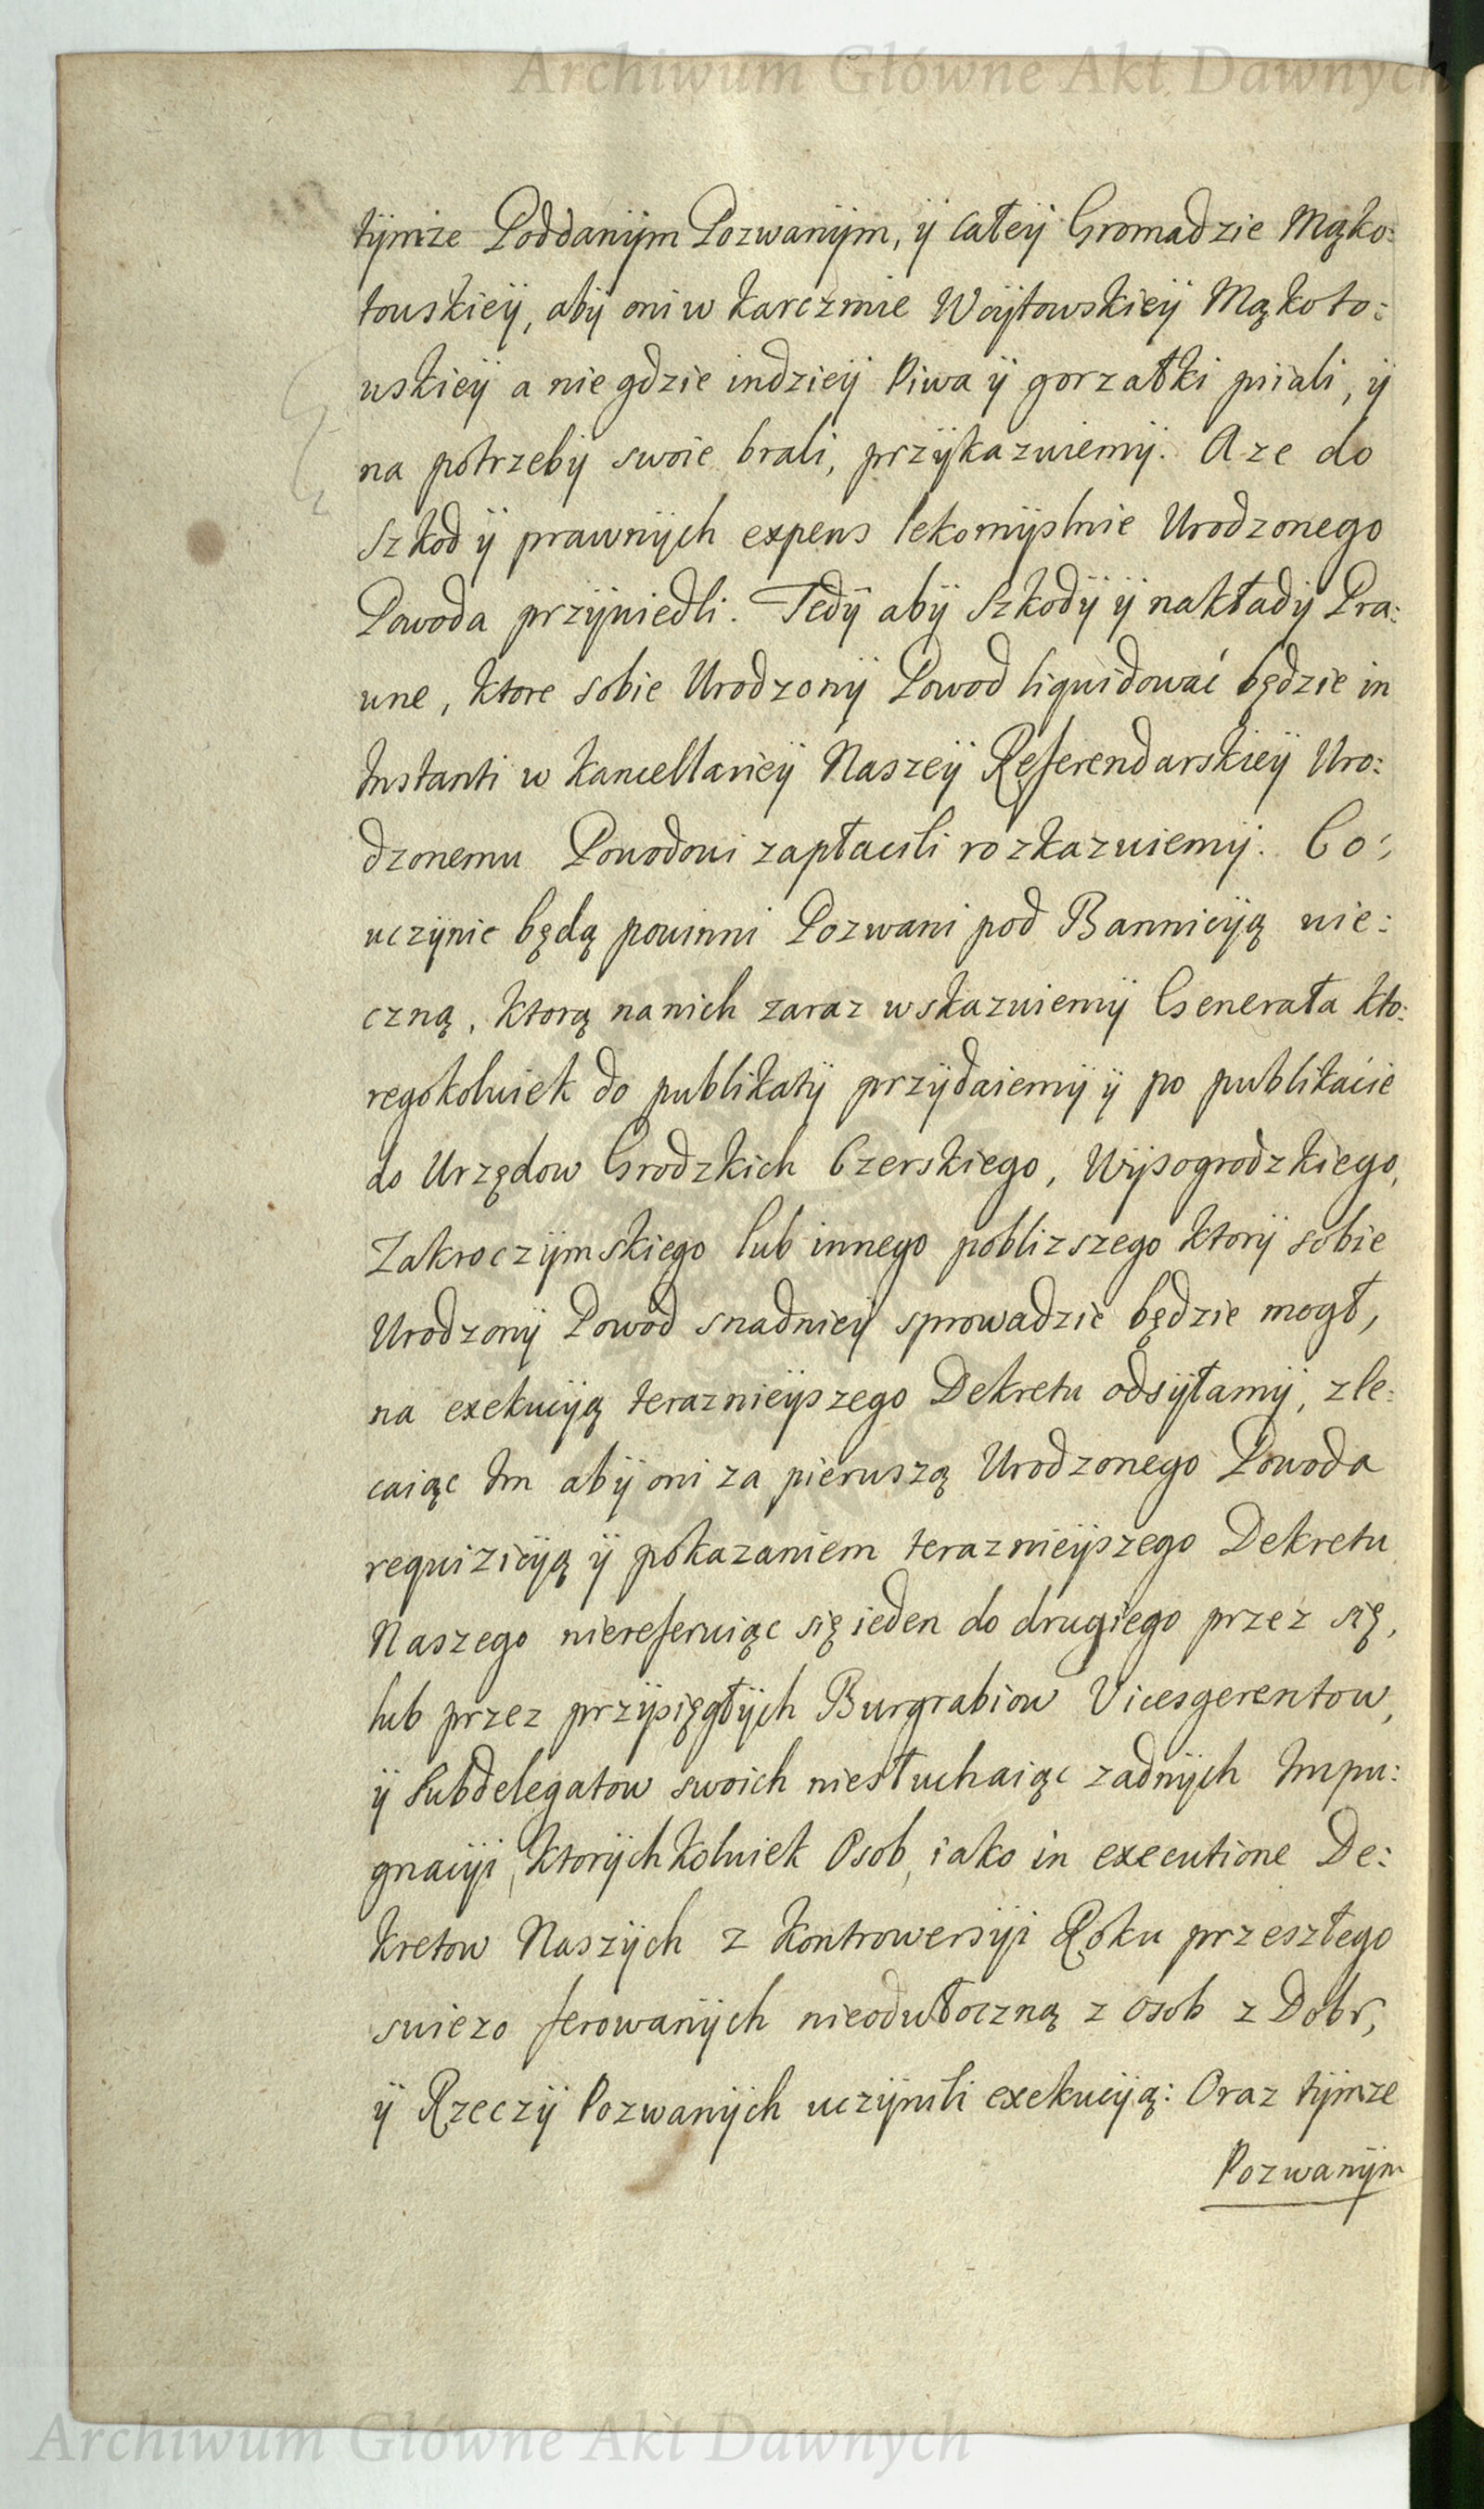 Archiwum Główne Akt Dawnych
tÿmże Poddanÿm Pozwanÿm, ÿ całeÿ Gromadzie Mąko:
touskieÿ, abÿ oni w karczmie Woÿtowskieÿ Mąkoto:
uskieÿ a nie gdzie indzieÿ Piwa ÿ gorzałki piiali, ÿ
na potrzebÿ swoie brali, przÿkazuiemÿ. A ze do
Szkod ÿ prawnÿch expens lekomÿslnie Urodzonego
Powoda przÿwiedli. Tedÿ abÿ Szkodÿ ÿ nakładÿ Pra:
une, ktore sobie Urodzonÿ Powod liquidować będzie in
Instanti w kancellarieÿ Naszeÿ Referendarskieÿ Uro:
dzonemu Powodoui zapłacili rozkazuiemÿ. Co:
uczÿnic będą pouinni Pozwani pod Bannicÿą uie:
czną, ktorą na nich zaraz wskazuiemÿ Generała kto:
regokoluiek do publikatÿ przÿdaiemÿ ÿ po publikacie
do Urzędow Grodzkich Czerskiego, Wÿsogrodzkiego,
Zakroczÿmskiego lub innego poblizszego ktorÿ sobie
Urodzonÿ Powod snadnieÿ sprowadzic będzie mogł,
na exekucÿą teraznieÿszego Dekretu odsÿłamÿ, zle:
caiąc Im abÿ oni za pieruszą Urodzonego Powoda
requizicÿą ÿ pokazaniem teraznieÿszego Dekretu
Naszego niereferuiąc się ieden do drugiego przez się,
lub przez przÿsięgłÿch Burgrabiow Vicesgerentow,
ÿ Subdelegatow swoich niesłuchaiąc zadnÿch Impu:
gnacÿi, ktorÿchkoluiek Osob, iako in executione De:
kretow Naszÿch z kontrowersÿi Roku przeszłego
suiezo ferowanÿch nieodwłoczną z osob z Dobr,
ÿ Rzeczÿ Pozwanÿch uczÿnili exekucÿą: Oraz tÿmze
Pozwanÿm
Archiwum Główne Akt Dawnych